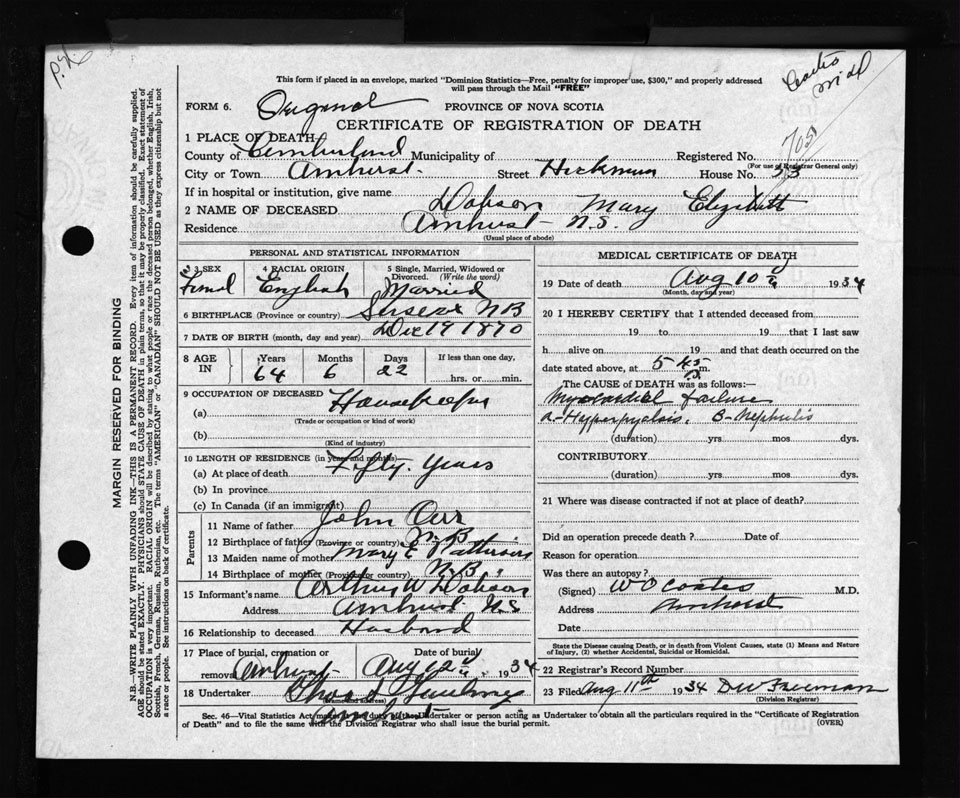 This form if placed in an envelope, marked "Dominion Statistics—Free, penalty for improper use, $300," and properly addressed
will pass through the Mail "FREE"
FORM 6. Original PROVINCE OF NOVA SCOTIA
CERTIFICATE OF REGISTRATION OF DEATH
1 PLACE OF DEATH
County of Cumberland Municipality of Registered No. 705
(For use of Registrar General only)
City or Town Amherst. Street Hickman House No. 53
If in hospital or institution, give name
2 NAME OF DECEASED Dobson Mary Elizabeth
Residence Amherst N.S.
(Usual place of abode)
PERSONAL AND STATISTICAL INFORMATION
3 SEX 4 RACIAL ORIGIN 5 Single, Married, Widowed or Divorced. (Write the word)
Femal English Married
6 BIRTHPLACE (Province or country) Sussex NB
7 DATE OF BIRTH (month, day and year) Dec 19 1870
8 AGE IN Years Months Days If less than one day,
64 6 22 hrs. or min.
9 OCCUPATION OF DECEASED Housekeeper
(a)
(Trade or occupation or kind of work)
(b)
(Kind of industry)
10 LENGTH OF RESIDENCE (in years and months)
(a) At place of death Fifty. Years
(b) In province
(c) In Canada (if an immigrant)
Parents
11 Name of father John Orr
12 Birthplace of father (Province or country) N.B.
13 Maiden name of mother Mary E
14 Birthplace of mother (Province or country) N.B.
15 Informant's name Arthur W Dobson
Address Amherst N.S
16 Relationship to deceased Husband
17 Place of burial, cremation or removal Date of burial
Amherst Aug 12 1934
18 Undertaker
(Name and address)
Amherst
MEDICAL CERTIFICATE OF DEATH
19 Date of death Aug 10 1934
(Month, day and year)
20 I HEREBY CERTIFY that I attended deceased from
19 to 19 that I last saw
h alive on 19 and that death occurred on
date stated above, at 5-45 m.
The CAUSE OF DEATH was as follows:—
Myocardial Failure
B-Nephritis
(duration) yrs mos dys.
CONTRIBUTORY
(duration) yrs mos dys.
21 Where was disease contracted if not at place of death?
Did an operation precede death? Date of
Reason for operation
Was there an autopsy?
(Signed) W O Coates M.D.
Address Amherst
Date
State the Disease causing Death, or in death from Violent Causes, state (1) Means and Nature
of Injury, (2) whether Accidental, Suicidal or Homicidal.
22 Registrar's Record Number
23 Filed Aug 11th 1934 DW Freeman
(Division Registrar)
Sec. 46—Vital Statistics Act makes it the duty of the Undertaker or person acting as Undertaker to obtain all the particulars required in the "Certificate of Registration
of Death" and to file the same with the Division Registrar who shall issue the burial permit. (OVER)
MARGIN RESERVED FOR BINDING
N.B.—WRITE PLAINLY WITH UNFADING INK—THIS IS A PERMANENT RECORD. Every item of information should be carefully supplied.
AGE should be stated EXACTLY. PHYSICIANS should STATE CAUSE OF DEATH in plain terms, so that it may be properly classified. Exact statement of
OCCUPATION is very important. RACIAL ORIGIN will be described by stating to what people or race the deceased person belonged, whether English, Irish,
Scottish, French, German, Russian, Ruthenian, etc. The terms "AMERICAN" or "CANADIAN" SHOULD NOT BE USED as they express citizenship but not
a race or people. See instructions on back of certificate.